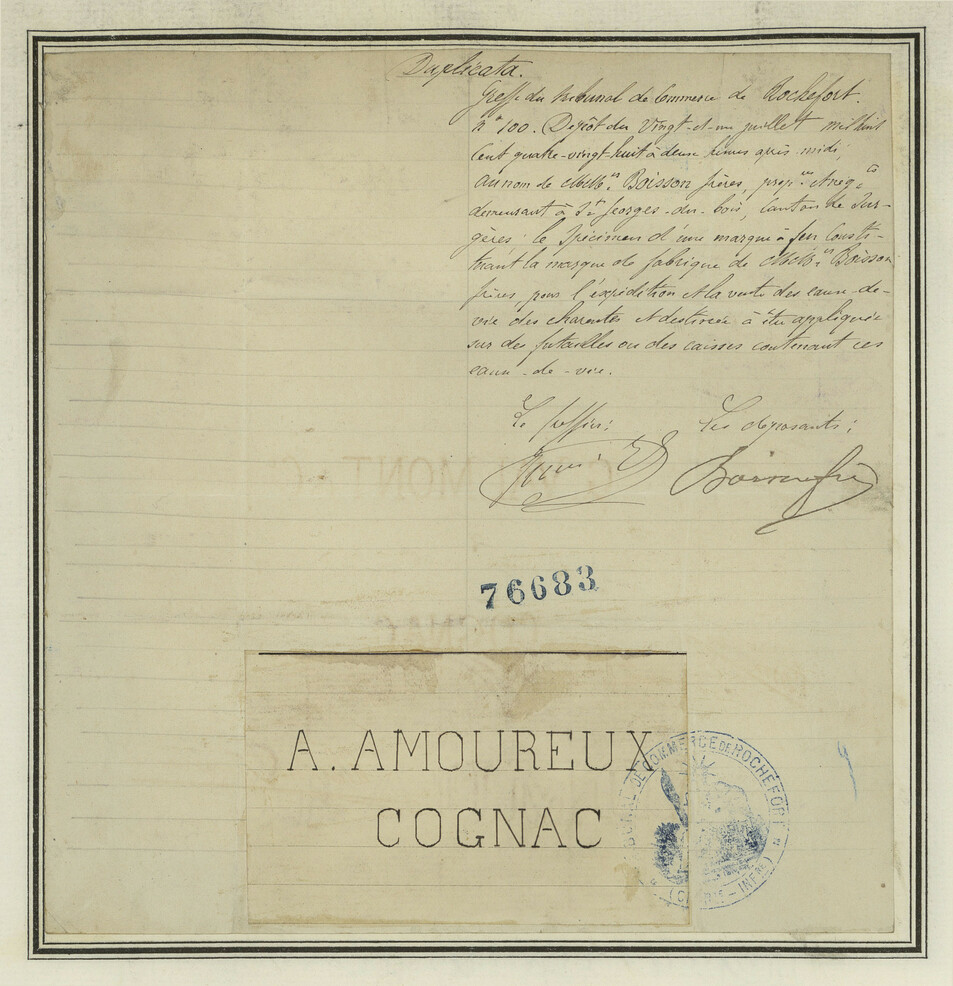 Duplicata.
Greffe du tribunal de Commerce de Rochefort.
n° 100. Dépôt du Vingt-et-un juillet mil huit
cent quatre-vingt-huit à deux heures après-midi,
au nom de MM.rs Boisson frères, prop.res et nég.ts
demeurant à St Georges-du-bois, canton de Sur-
gères: le spécimen d'une marque à feu consti-
tuant la marque de fabrique de MM.rs Boisson
frères, pour l'expédition et la vente des eaux-de-
vie des charentes et destinée à être appliquée
sur des futailles ou des caisses contenant ces
eaux-de-vie.
Le greffier: Les déposants:
Boisson frères
76683
A. AMOUREUX
COGNAC
TRIBUNAL DE COMMERCE DE ROCHEFORT
(CHARTE-INFRE)